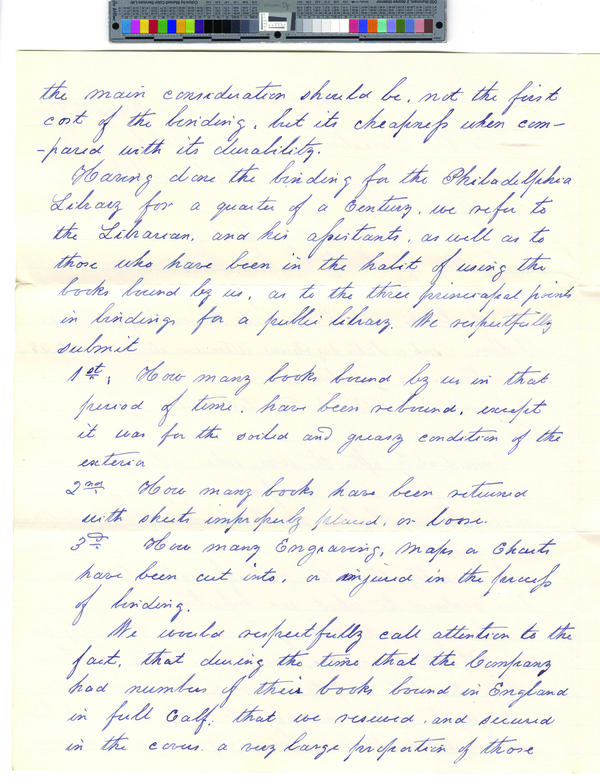 the main consideration should be, not the first
cost of the binding, but its cheapness when com-
-pared with its durability.
Having done the binding for the Philadelphia
Library for a quarter of a Century, we refer to
the Librarian, and his assistants, as well as to
those who have been in the habit of using the
books bound by us, as to the three principal points
in bindings for a public library. We respectfully
submit
1st, How many books bound by us in that
period of time, have been rebound, except
it was for the soiled and greasy condition of the
exterior
2nd How many books have been returned
with sheets improperly placed, or loose.
3d How many Engraving, Maps or Charts
have been cut into, or injured in the process
of binding.
We would respectfully call attention to the
fact, that during the time that the Company
had numbers of their books bound in England
in full Calf; that we resewed, and secured
in the covers a very large proportion of those